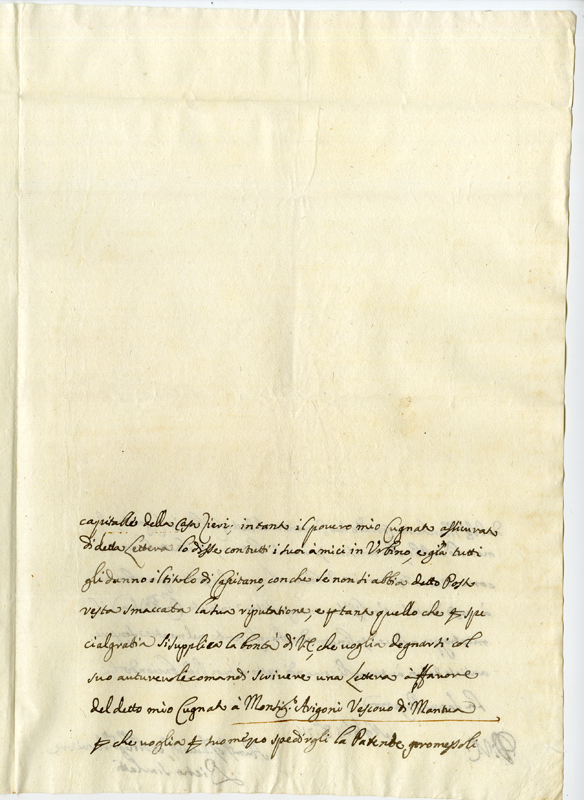 capitalle della Casa Pieri; in tanto il povero mio Cugnato assicurato
di detta Lettera lo disse con tutti i suoi amici in Urbino, e già tutti
gli danno il titolo di Capitano, con che se non si abbia detto Posto
resta smaccata la sua riputatione, e ꝑ tanto quello che ꝑ spe
cial gratia si supplica la bontà di V.E., che voglia degnarsi col
suo autorevole comandi scrivere una Lettera à ffavore
del detto mio Cugnato à Monsigr. Arigoni Vescovo di Mantua
ꝑ che voglia ꝑ suo mezzo spedirgli la Patente promessoli